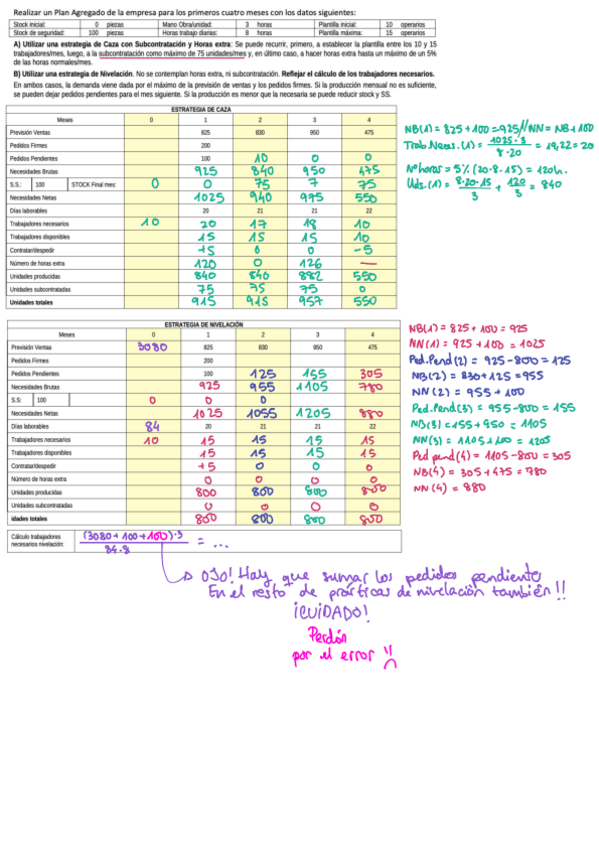 Realizar un Plan Agregado de la empresa para los primeros cuatro meses con los datos siguientes:
Stock inicial: 0 piezas Mano Obra/unidad: 3 horas Plantilla inicial: 10 operarios
Stock de seguridad: 100 piezas Horas trabajo diarias: 8 horas Plantilla máxima: 15 operarios
A) Utilizar una estrategia de Caza con Subcontratación y Horas extra: Se puede recurrir, primero, a establecer la plantilla entre los 10 y 15
trabajadores/mes, luego, a la subcontratación como máximo de 75 unidades/mes y, en último caso, a hacer horas extra hasta un máximo de un 5%
de las horas normales/mes.
B) Utilizar una estrategia de Nivelación. No se contemplan horas extra, ni subcontratación. Reflejar el cálculo de los trabajadores necesarios.
En ambos casos, la demanda viene dada por el máximo de la previsión de ventas y los pedidos firmes. Si la producción mensual no es suficiente,
se pueden dejar pedidos pendientes para el mes siguiente. Si la producción es menor que la necesaria se puede reducir stock y SS.
ESTRATEGIA DE CAZA
Meses 0 1 2 3 4
Previsión Ventas 825 830 950 475
Pedidos Firmes 200
Pedidos Pendientes 100 10 0 0
Necesidades Brutas 925 840 950 475
S.S.: 100 STOCK Final mes: 0 0 75 7 75
Necesidades Netas 1025 940 975 550
Días laborables 20 21 21 22
Trabajadores necesarios 10 20 17 18 10
Trabajadores disponibles 15 15 15 10
Contratar/despedir +5 0 0 -5
Número de horas extra 120 0 126 —
Unidades producidas 840 840 882 550
Unidades subcontratadas 75 75 75 0
Unidades totales 915 915 957 550
NB(1) = 825 + 100 = 925 // NN = NB + 100
Trab. Neces. (1) = 1025·3 / 8·20 = 19,22 = 20
Nº horas = 5% (20·8·15) = 120h.
Uds. (1) = 8·20·15 / 3 + 120 / 3 = 840
ESTRATEGIA DE NIVELACIÓN
Meses 0 1 2 3 4
Previsión Ventas 3080 825 830 950 475
Pedidos Firmes 200
Pedidos Pendientes 100 125 155 305
Necesidades Brutas 925 955 1105 780
S.S: 100 0 0 0 0 0
Necesidades Netas 1025 1055 1205 880
Días laborables 84 20 21 21 22
Trabajadores necesarios 10 15 15 15 15
Trabajadores disponibles 15 15 15 15
Contratar/despedir +5 0 0 0
Número de horas extra 0 0 0 0
Unidades producidas 800 800 800 800
Unidades subcontratadas 0 0 0 0
idades totales 800 800 800 800
NB(1) = 825 + 100 = 925
NN(1) = 925 + 100 = 1025
Ped.Pend (2) = 925 - 800 = 125
NB(2) = 830 + 125 = 955
NN (2) = 955 + 100
Ped.Pend(3) = 955 - 800 = 155
NB(3) = 155 + 950 = 1105
NN(3) = 1105 + 100 = 1205
Ped pend(4) = 1105 - 800 = 305
NB(4) = 305 + 475 = 780
NN (4) = 880
Cálculo trabajadores necesarios nivelación: (3080 + 100 + 100)·3 / 84·8 = ...
OJO! Hay que sumar los pedidos pendiente
En el resto de prácticas de nivelación también!!
¡CUIDADO!
Perdón
por el error !!